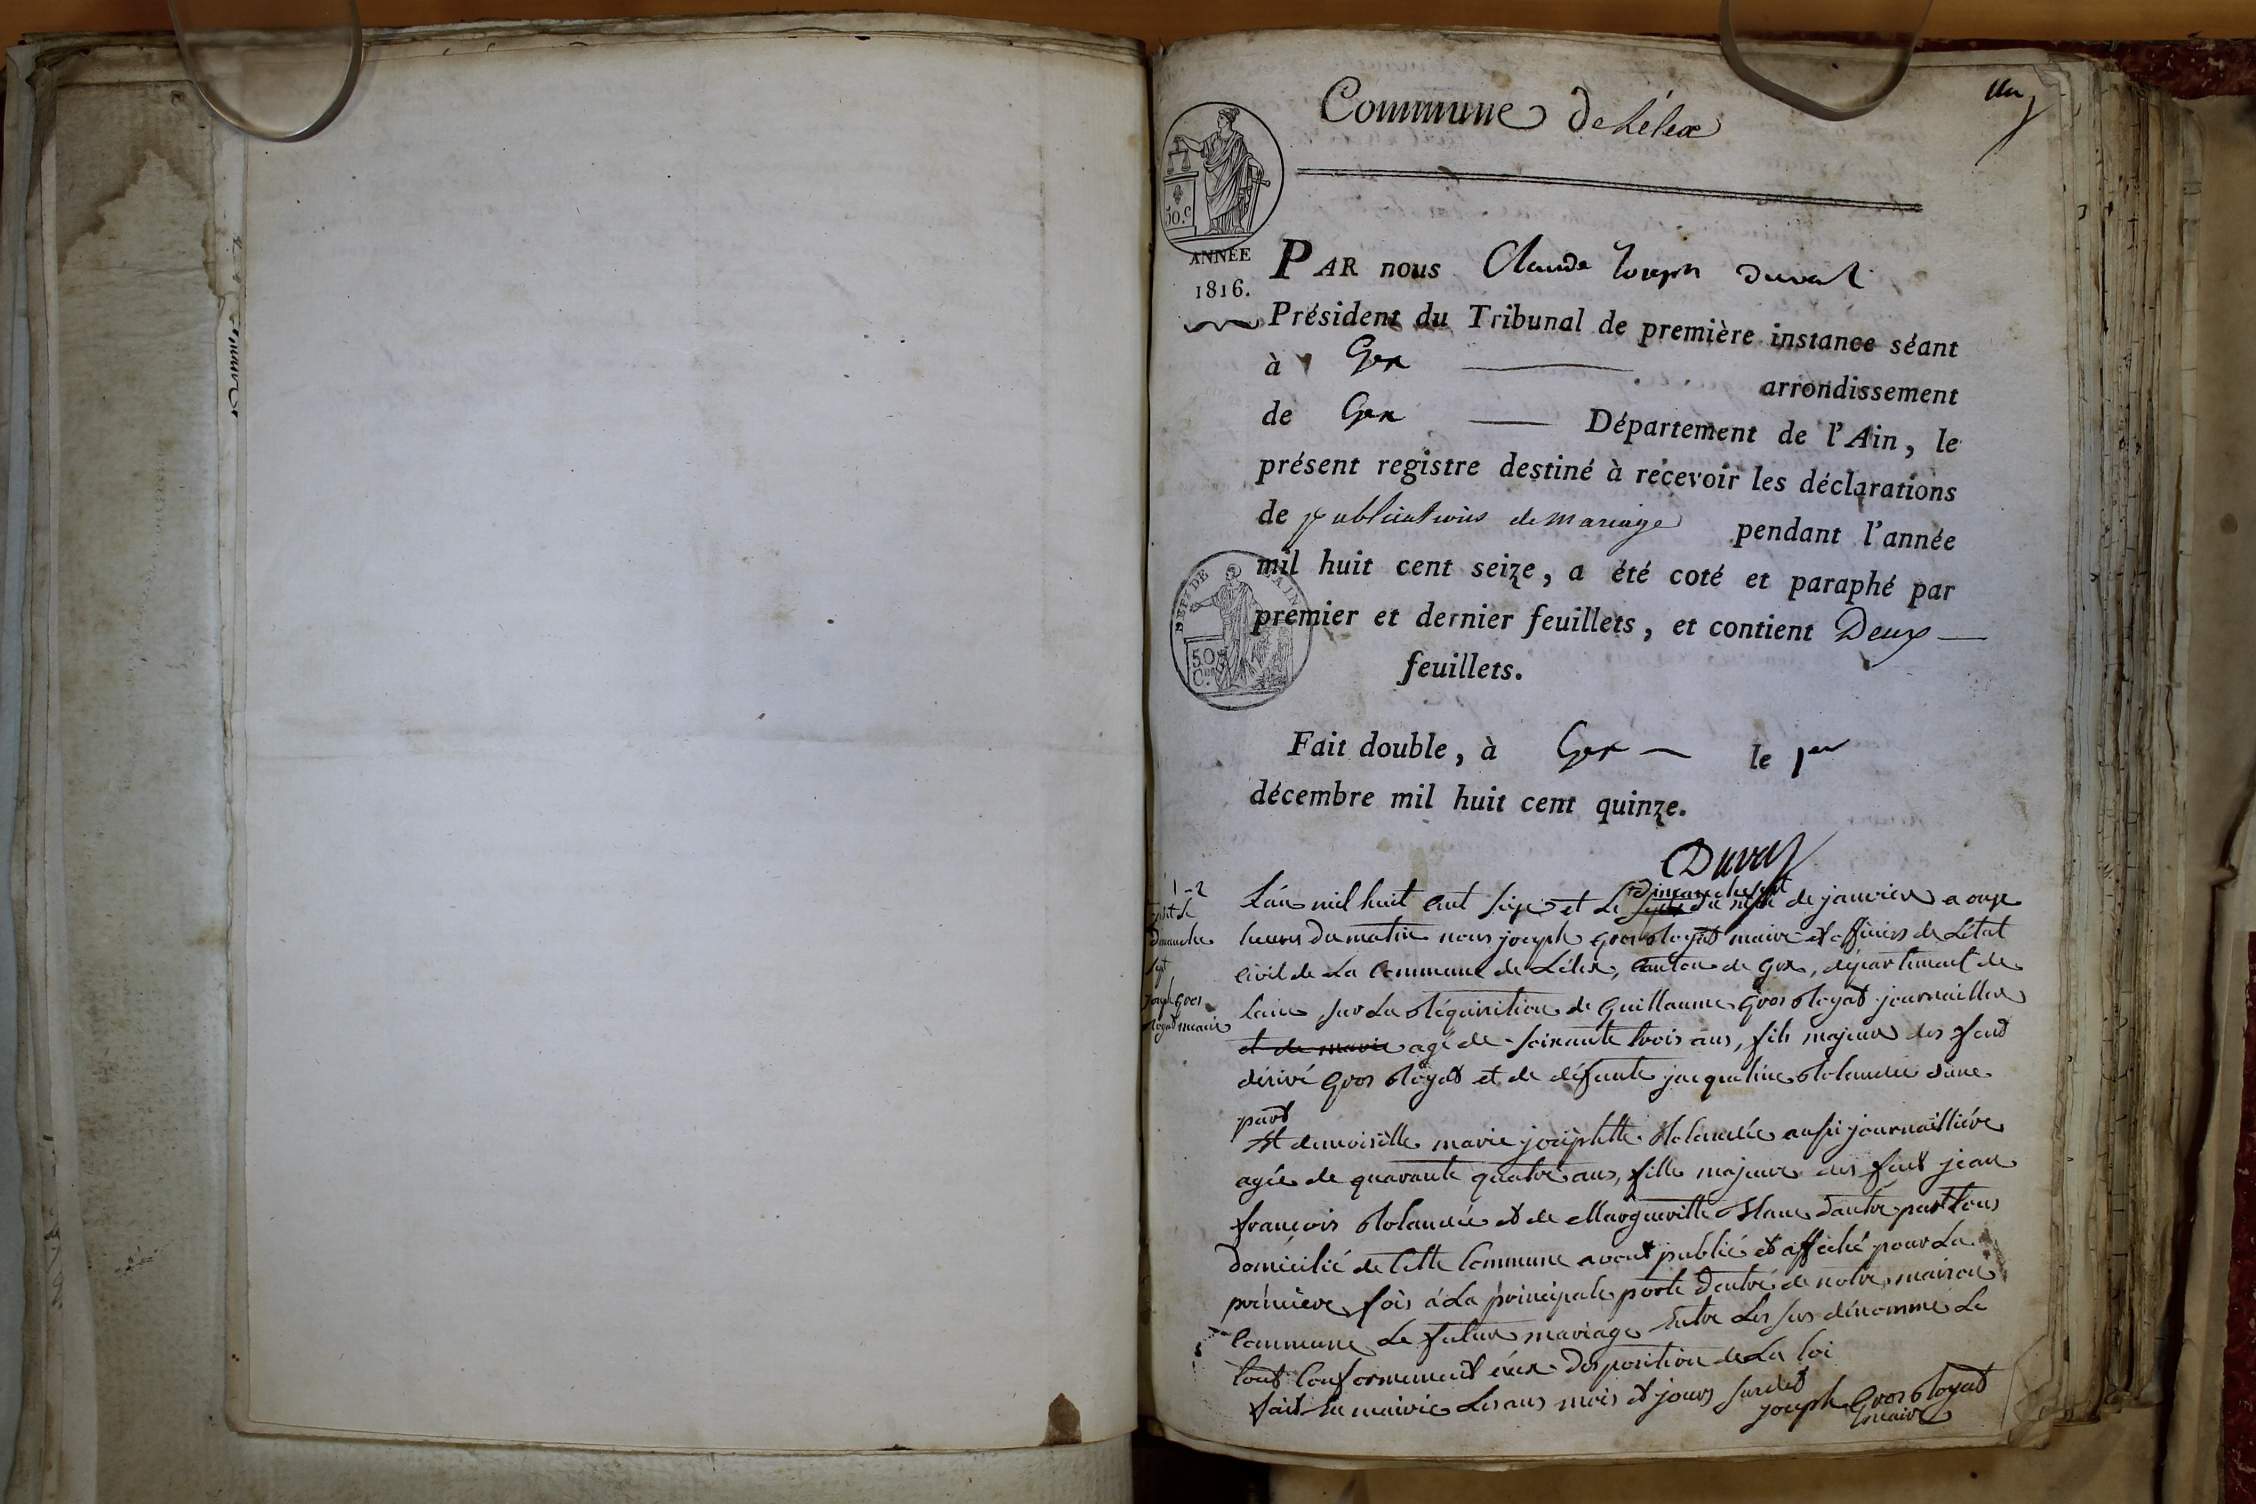 un
Commune de Lélex
50.c
ANNÉE
1816.
PAR nous Claude Joseph Duval
Président du Tribunal de première instance séant
à Gex arrondissement
de Gex Département de l'Ain, le
présent registre destiné à recevoir les déclarations
de publications de mariage pendant l'année
mil huit cent seize, a été coté et paraphé par
premier et dernier feuillets, et contient Deux
feuillets.
DEPT DE L'AIN
50 C.
Fait double, à Gex le 1er
décembre mil huit cent quinze.
Duval
1-2
dimanche
sept
Joseph gros
maire
dimanche sept
L'an mil huit cent seize et le de janvier a onze
heures du matin nous joseph gros maire et officiers de L'état
civil de La Commune de Lélex, Canton de Gex, département de
Lain sur La réquisition de Guillaume Gros journaillier
et de marie agé de soixante trois ans, fils majeur des feud
Gros et de défunte jacqueline d'une
part
Et demoiselle marie joséphtte aussi journaillière
agée de quarante quatre ans, fille majeure des feut jean
françois et de Margueritte d'autre part tous
domicilié de Cette Commune avont publié et affiché pour La
première fois à La principale porte d'entré de notre maison
Commune Le futur mariage Entre Les sus dénommé Le
tout Conformement aux disposition de La loi
fait En mairie Les ans mois et jours susdit
joseph Gros
maire